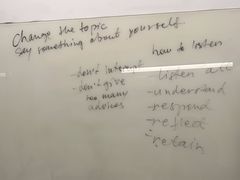 Change the topic
say something about yourself
how to listen
- don't interrupt
- don't give
too many
advices
- listen all
- understand
- respond
- reflect
- retain